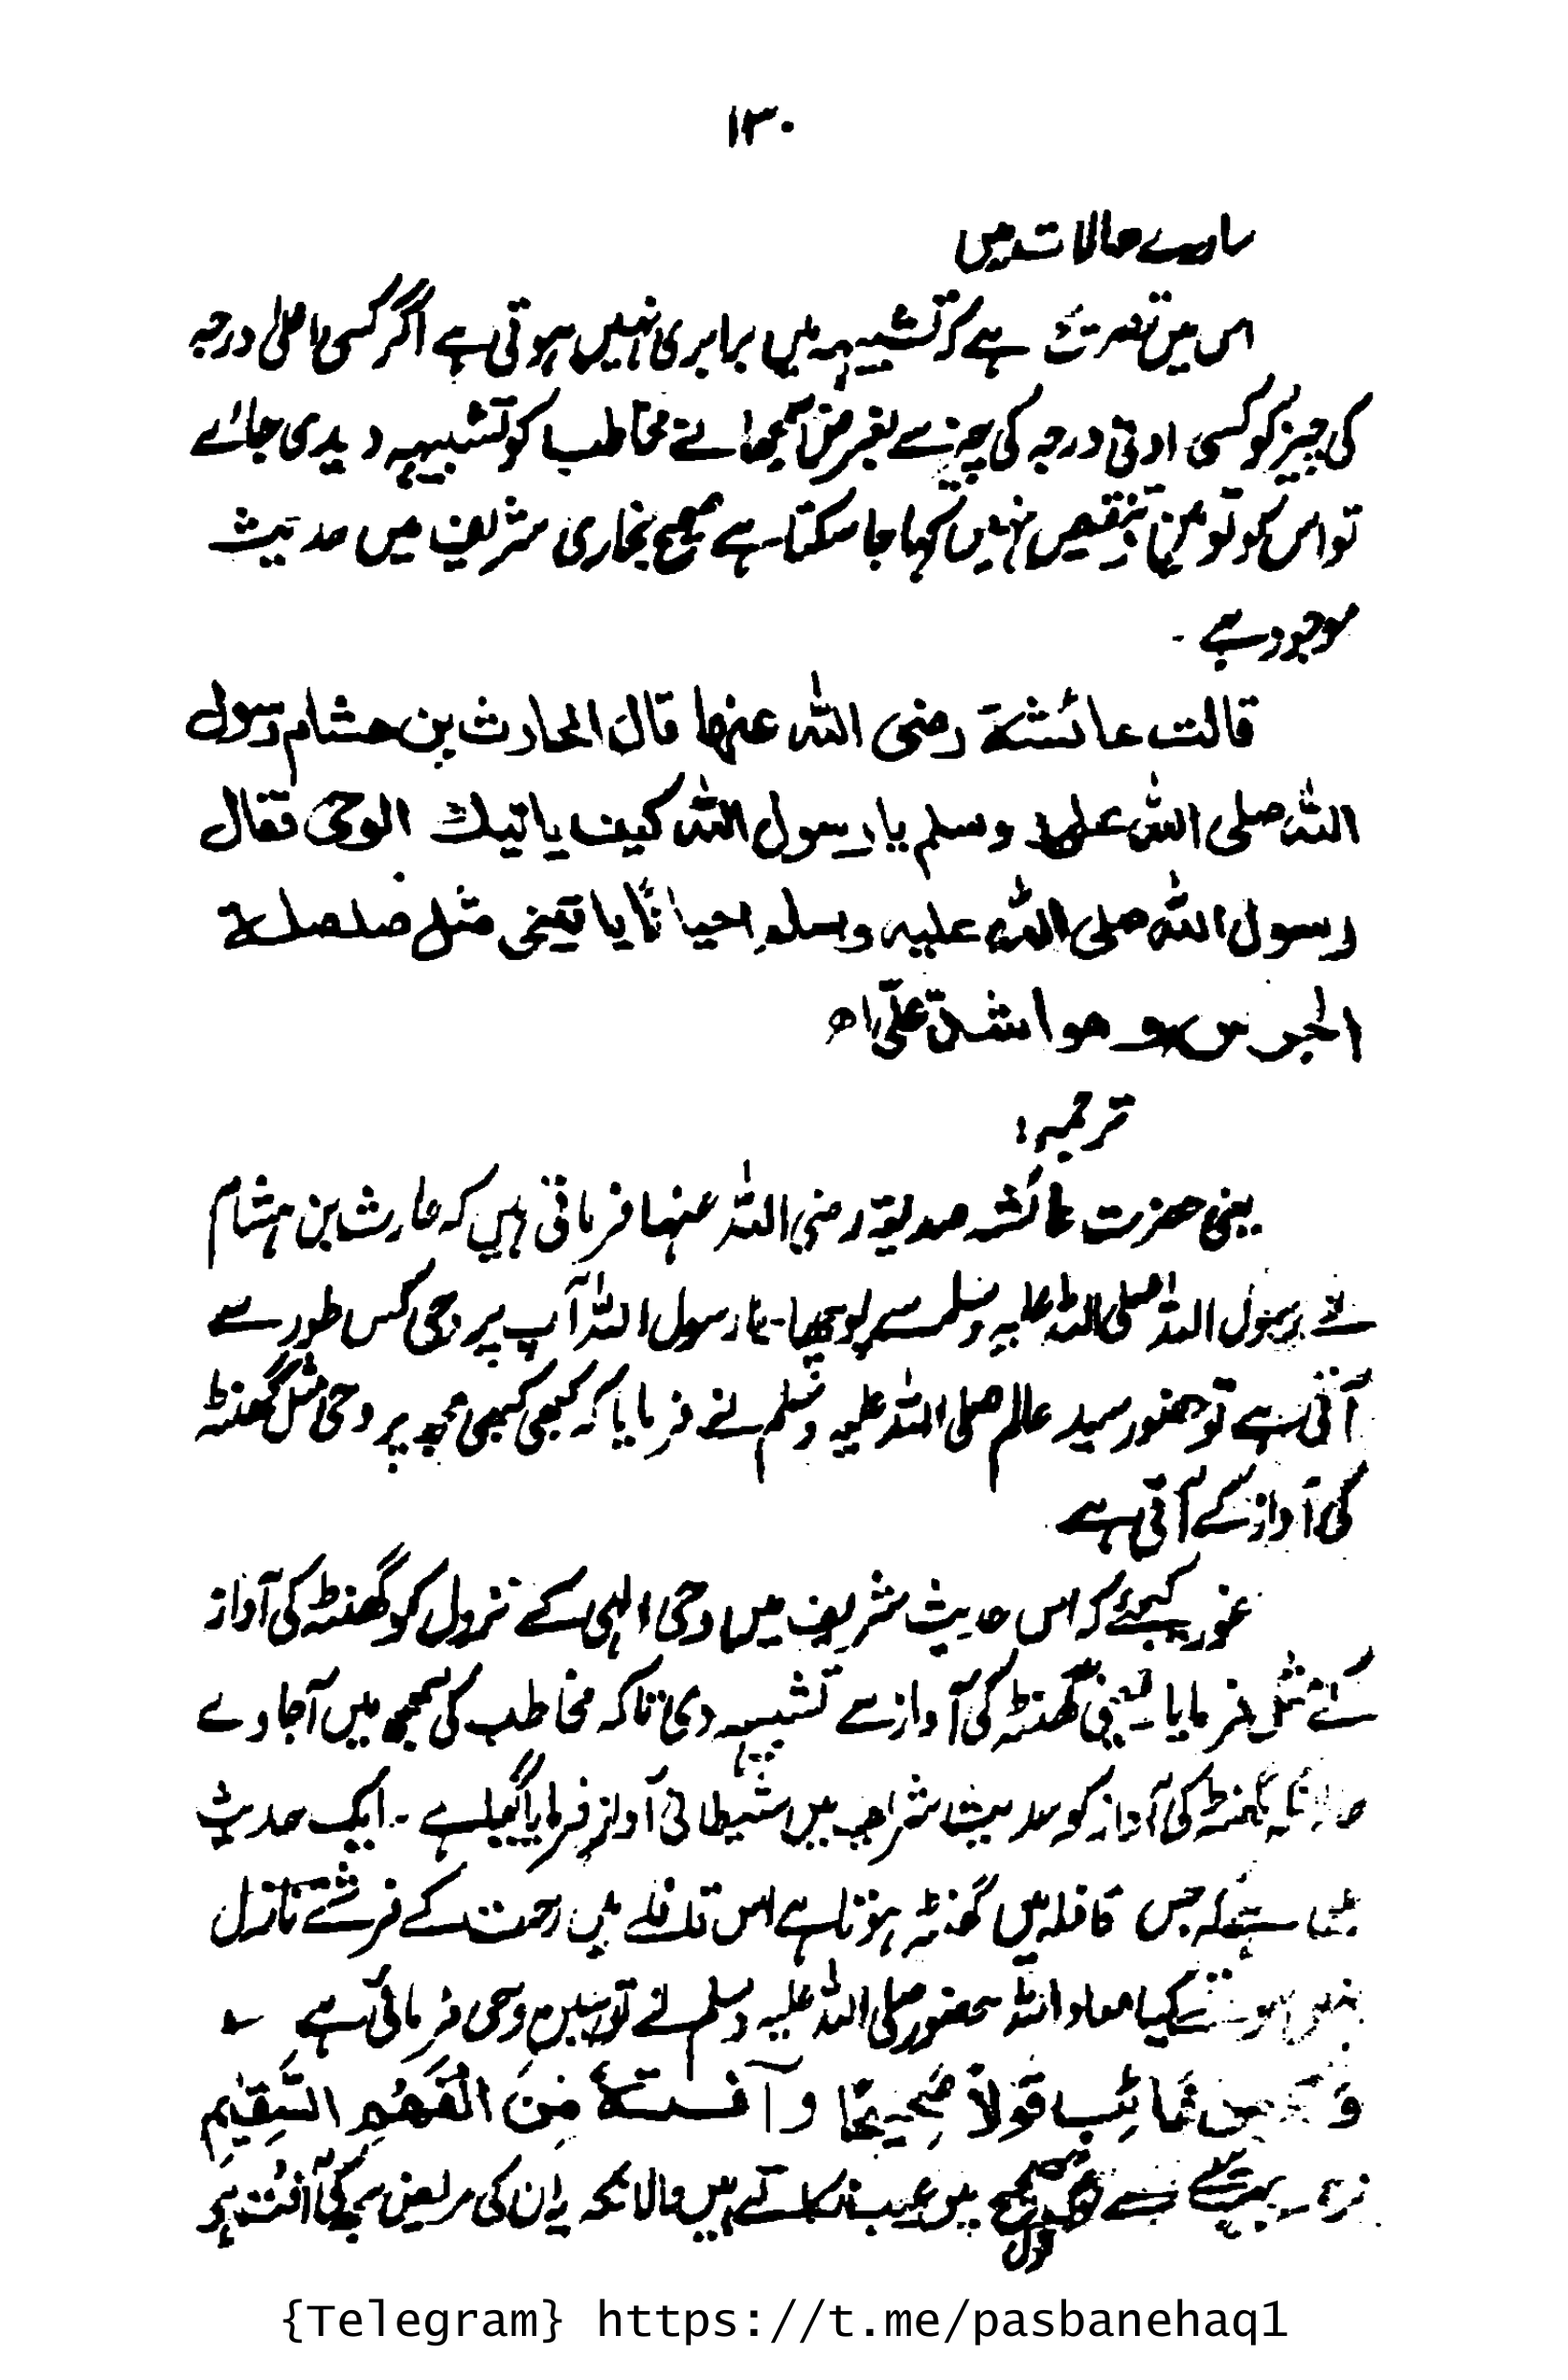 ۱۳۰
سارے حالات میں
اس میں تصریح ہے کہ تشبیہہ میں برابری نہیں ہوتی ہے اگر کسی اعلیٰ درجہ
کی چیز کو کسی ادنی درجہ کی چیز سے بغرض سمجھانے مخاطب کو تشبیہہ دیدی جائے
تو اس کو توہین تنقیص نہیں کہا جا سکتا ہے صحیح بخاری شریف میں حدیث
موجود ہے ۔
قالت عائشة رضی اللہ عنہا قال الحارث بن ہشام رسول
اللہ صلی اللہ علیہ وسلم یا رسول اللہ کیف یاتیک الوحی فقال
رسول اللہ صلی اللہ علیہ وسلم احیانًا یاتینی مثل صلصلة
الجرس وھو اشدۃ علیّ اھ
ترجمہ :
یعنی حضرت عائشہ صدیقہ رضی اللہ عنہا فرماتی ہیں کہ حارث بن ہشام
نے رسول اللہ صلی اللہ علیہ وسلم سے پوچھا ۔ یا رسول اللہ آپ پر وحی کس طور سے
آتی ہے تو حضور سید عالم صلی اللہ علیہ وسلم نے فرمایا کہ کبھی کبھی مجھ پر وحی مثل گھنٹہ
کی آواز کے آتی ہے
غور کیجئے کہ اس حدیث شریف میں وحی الہی کے نزول کو گھنٹہ کی آواز
کے مثل فرمایا یعنی گھنٹہ کی آواز سے تشبیہہ دی تاکہ مخاطب کی سمجھ میں آجاوے
حالانکہ گھنٹہ کی آواز کو حدیث شریف میں شیطانی آواز فرمایا گیا ہے ۔ ایک حدیث
میں ہے کہ جس قافلہ میں گھنٹہ ہوتا ہے اس قافلے میں رحمت کے فرشتے نازل
نہیں ہوتے کیا معاذ اللہ حضور صلی اللہ علیہ وسلم نے توہین وحی فرمائی ہے ؎
وَ مِن عَائِبٍ قَوْلاً صَحِيْحًا وَآفَتُهُ مِنَ الْفَهْمِ السَّقِيْمِ
بہت سے صحیح قول میں عیب نکالتے ہیں حالانکہ یہ ان کی مریض سمجھ کی آفت ہے
{Telegram} https://t.me/pasbanehaq1